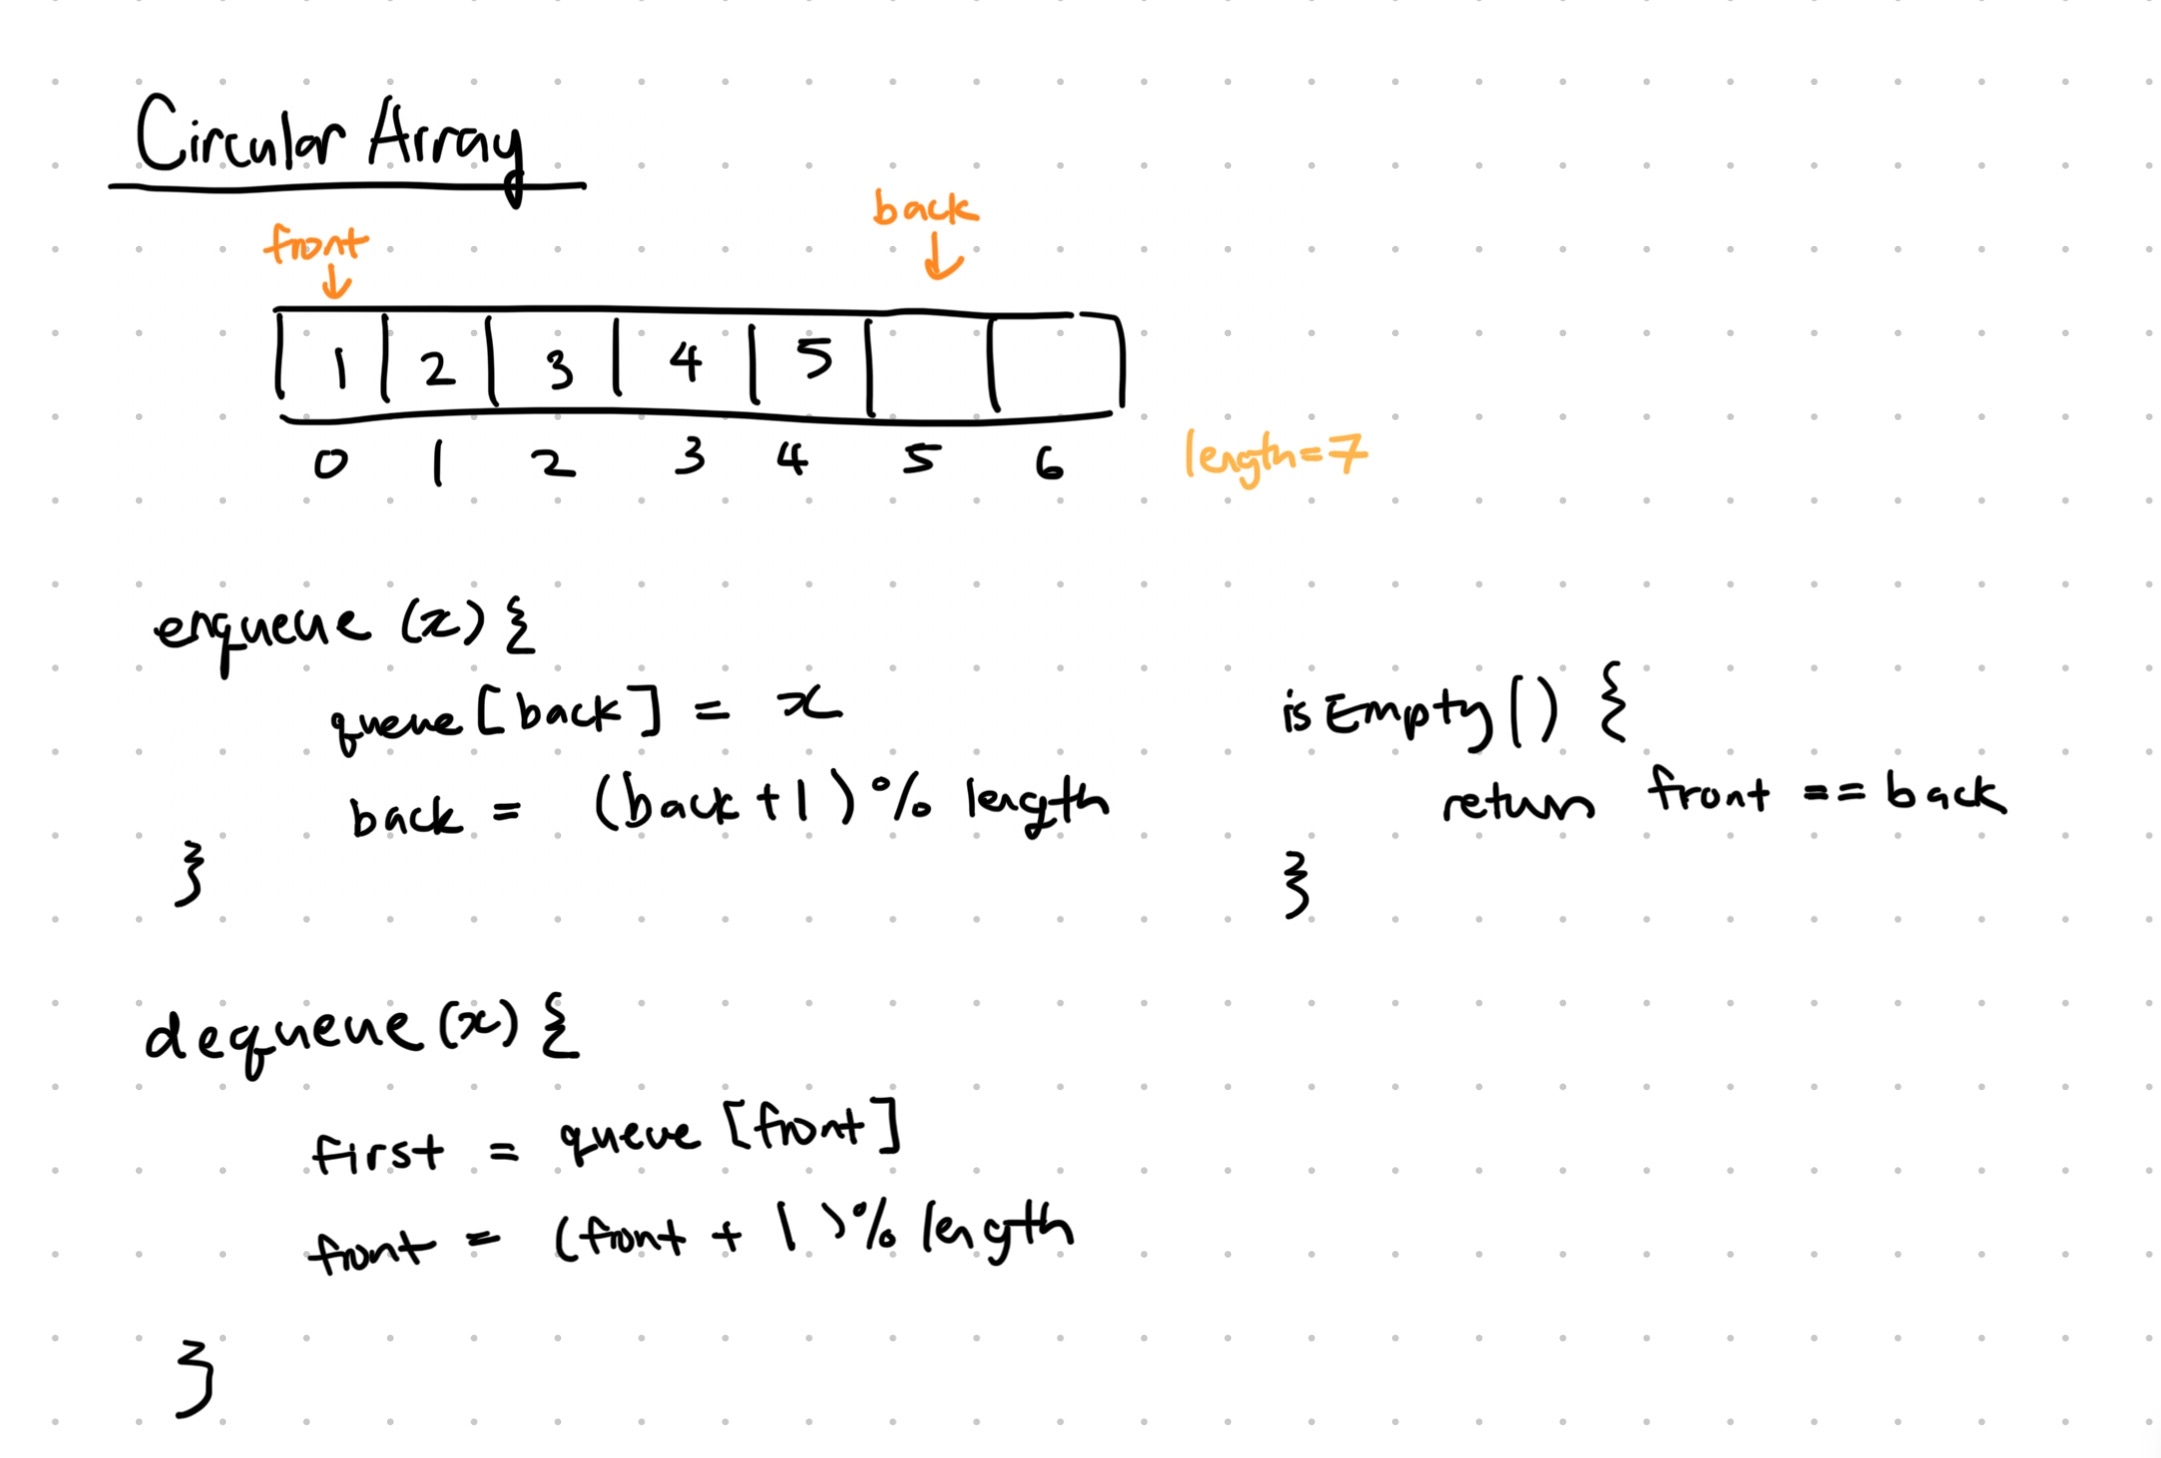 Circular Array
front back
1 2 3 4 5
0 1 2 3 4 5 6 length=7
enqueue (x) {
queue [back] = x
back = (back + 1) % length
}
isEmpty() {
return front == back
}
dequeue (x) {
first = queue [front]
front = (front + 1) % length
}